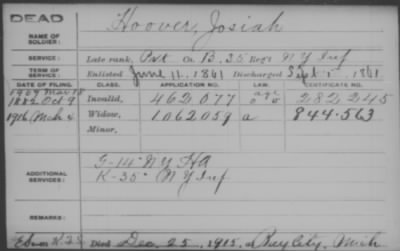 DEAD
NAME OF SOLDIER: Hoover, Josiah
SERVICE: Late rank, Pvt Co. B, 35 Reg't N Y Inf
TERM OF SERVICE: Enlisted June 11, 1861 Discharged Sept 1861
DATE OF FILING. CLASS. APPLICATION NO. LAW. CERTIFICATE NO.
1882 Oct 9 Invalid, 462,077 282,245
1916 Mch 4 Widow, 1062059 a 844.563
Minor,
ADDITIONAL SERVICES: G-14" N Y HA
K-35" N Y Inf
REMARKS:
Died Dec 25, 1915, at Bay City, Mich